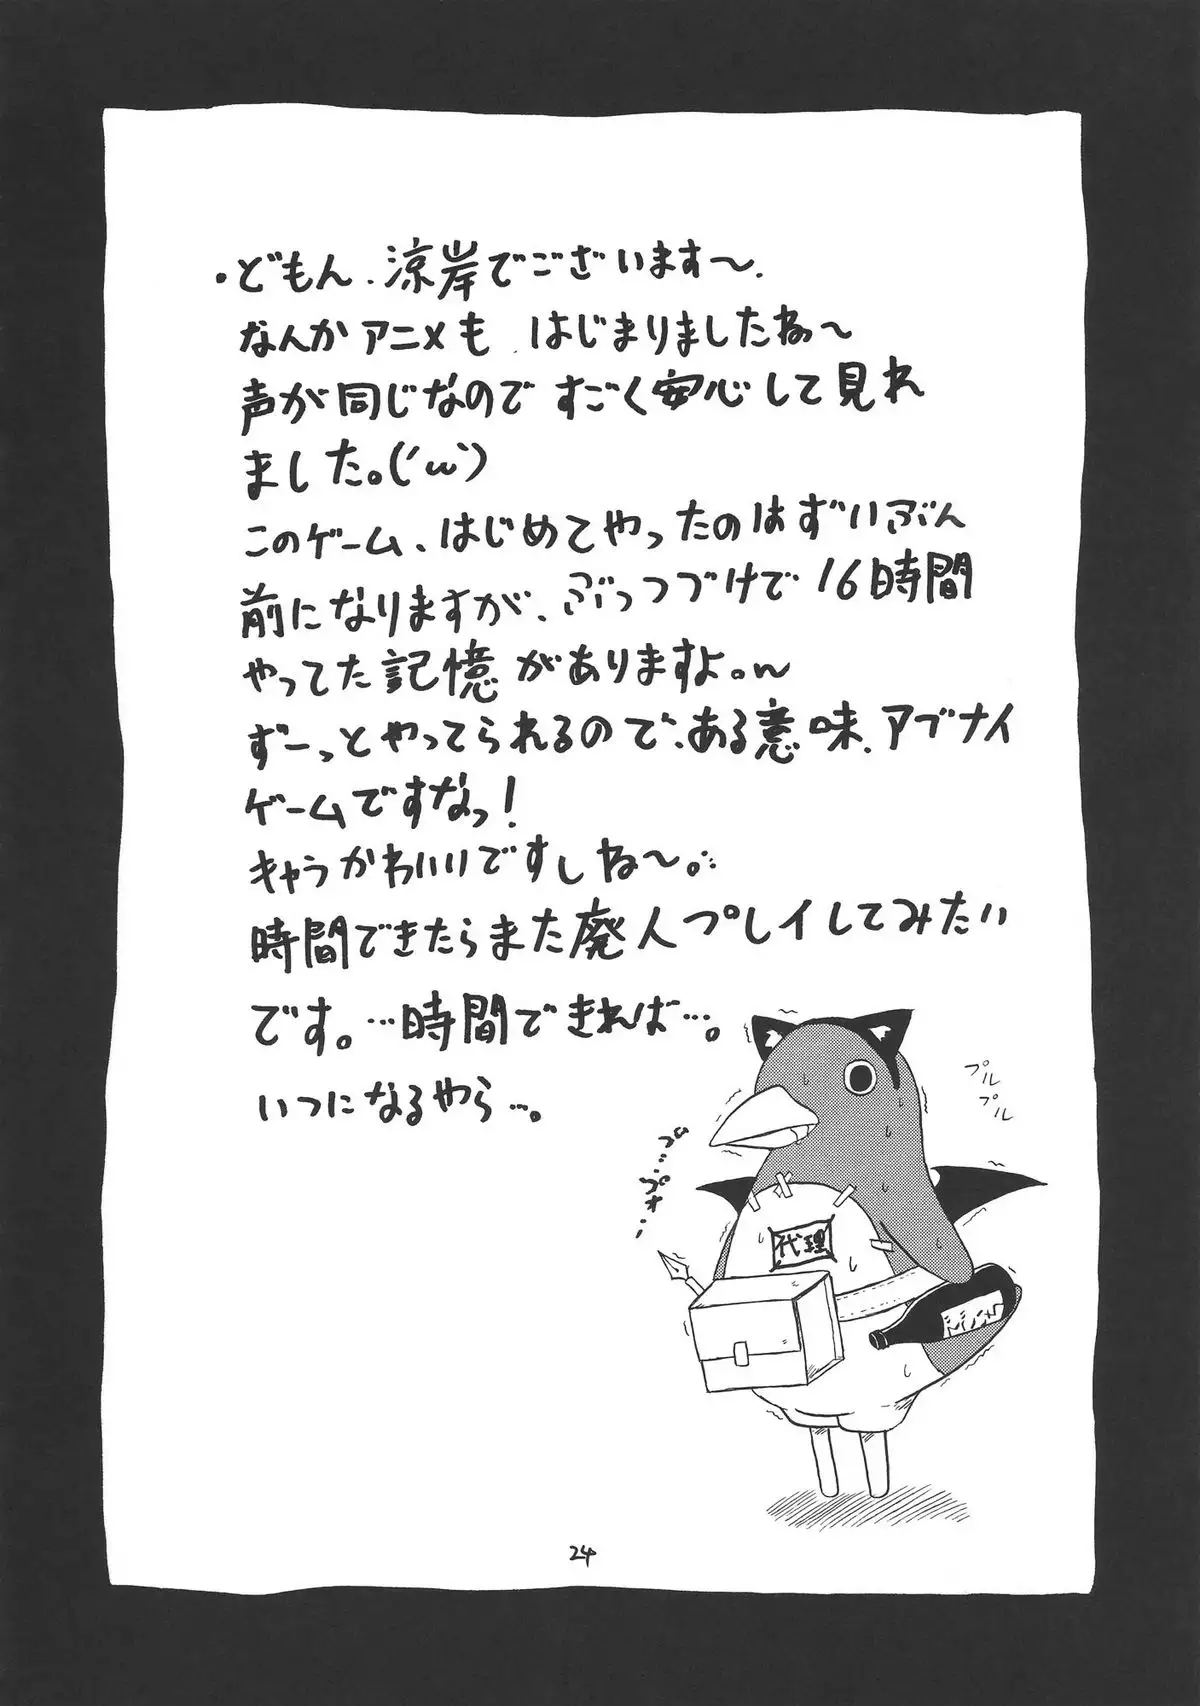 ・どもん、涼岸でございます〜.
なんかアニメも はじまりましたねぇ〜
声が同じなので すごく安心して見れ
ました。(´ω`)
このゲーム、はじめてやったのはずいぶん
前になりますが、ぶっつづけで 16時間
やってた記憶がありますよ。w
ずーっとやってられるので、ある意味、アブナイ
ゲームですなっ!
キャラかわいいですしね〜。
時間できたらまた廃人プレイしてみたい
です。…時間できれば…。
いつになるやら…。
プル
プル
代理
24